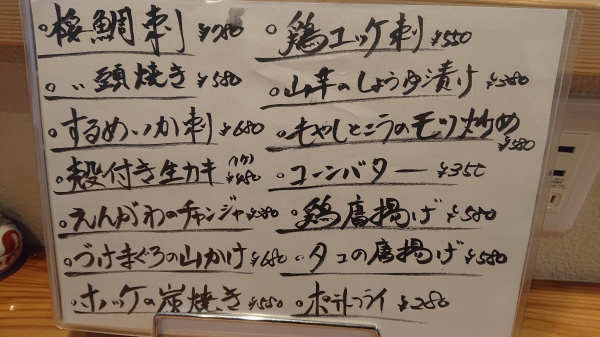 桜鯛刺 ¥780
〃頭焼き ¥580
するめいか刺 ¥680
殻付き生カキ (1ケ) ¥480
えんがわのチャンジャ ¥380
づけまぐろの山かけ ¥680
ホッケの炭焼き ¥550
鶏ユッケ刺 ¥550
山芋のしょうゆ漬け ¥380
もやしとニラのモツ炒め ¥580
コーンバター ¥350
鶏唐揚げ ¥580
タコの唐揚げ ¥580
ポテトフライ ¥280